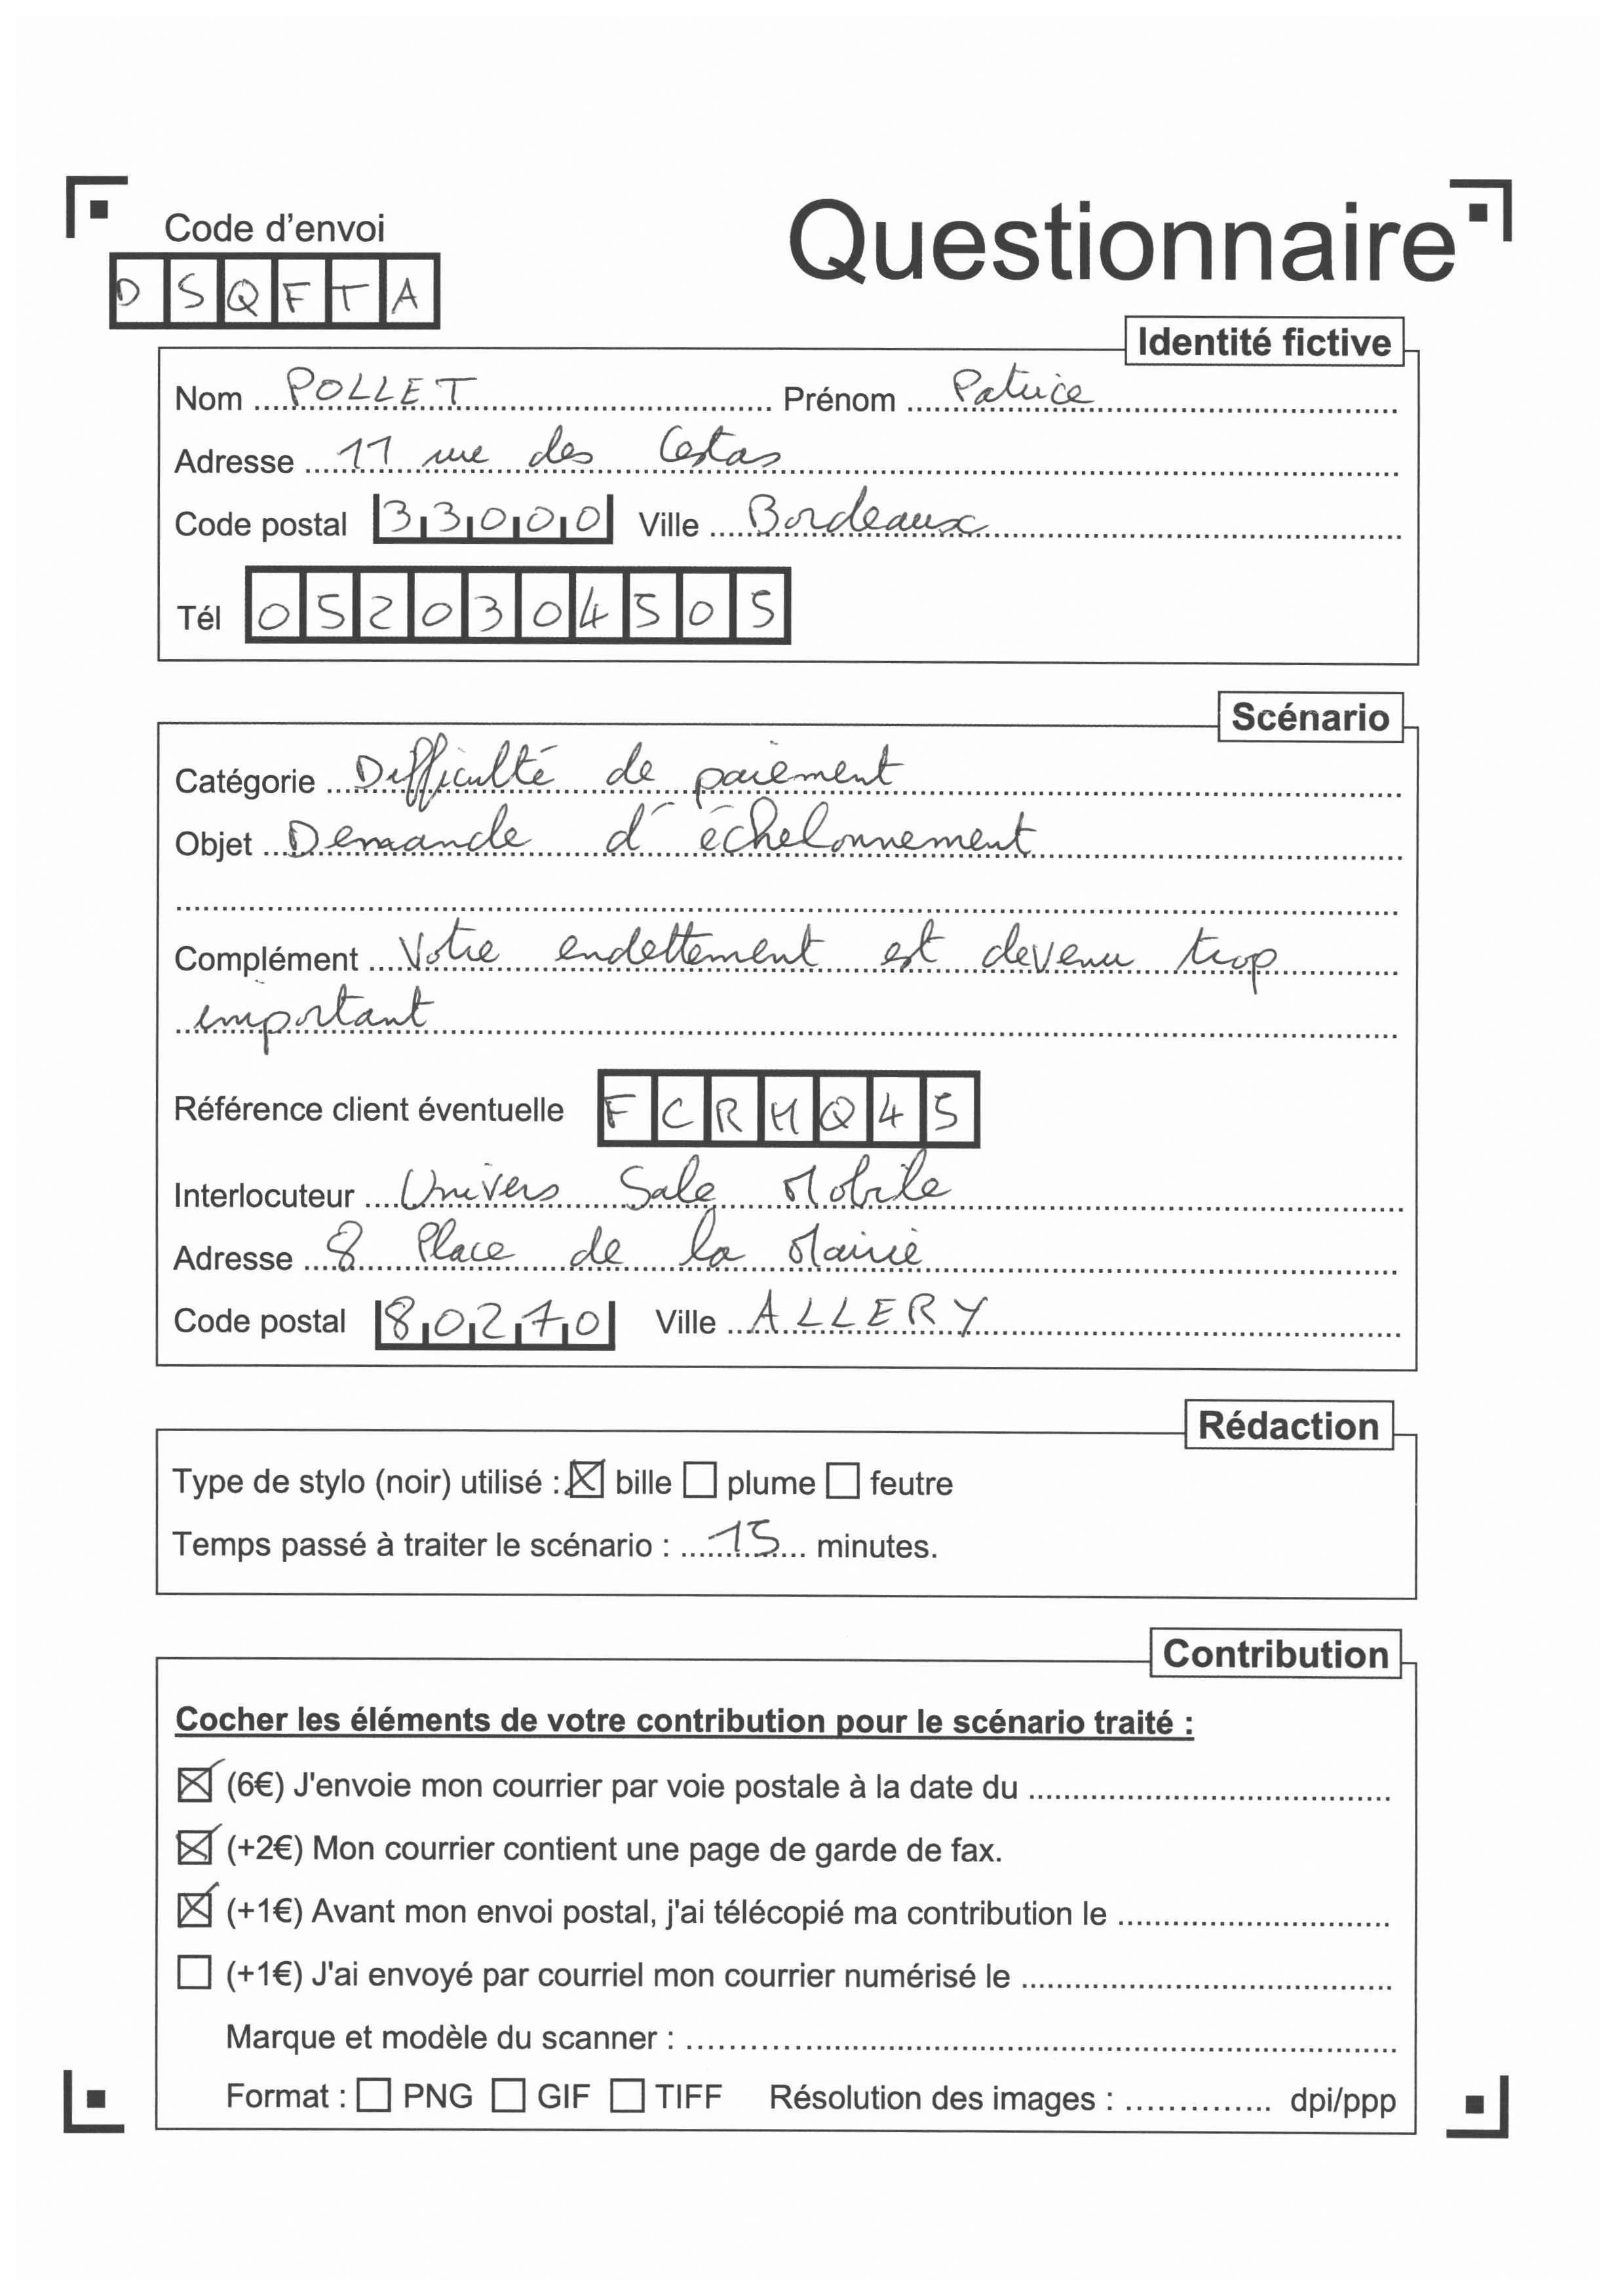 Code d'envoi
Questionnaire
D S Q F T A
Identité fictive
Nom POLLET Prénom Patrice
Adresse 11 rue des Cestas
Code postal 33000 Ville Bordeaux
Tél 0520304505
Scénario
Catégorie Difficulté de paiement
Objet Demande d'échelonnement
Complément Votre endettement est devenu trop
important
Référence client éventuelle FCRMQ45
Interlocuteur Univers Sale Mobile
Adresse 8 Place de la Mairie
Code postal 80270 Ville ALLERY
Rédaction
Type de stylo (noir) utilisé : ☒ bille ☐ plume ☐ feutre
Temps passé à traiter le scénario : 15 minutes.
Contribution
Cocher les éléments de votre contribution pour le scénario traité :
☒ (6€) J'envoie mon courrier par voie postale à la date du
☒ (+2€) Mon courrier contient une page de garde de fax.
☒ (+1€) Avant mon envoi postal, j'ai télécopié ma contribution le
☐ (+1€) J'ai envoyé par courriel mon courrier numérisé le
Marque et modèle du scanner :
Format : ☐ PNG ☐ GIF ☐ TIFF Résolution des images : dpi/ppp